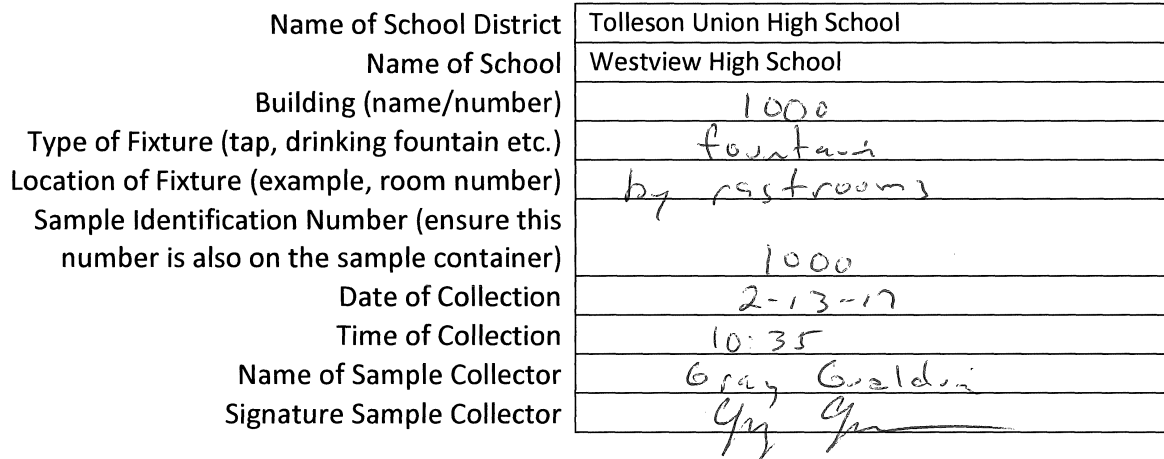 Name of School District Tolleson Union High School
Name of School Westview High School
Building (name/number) 1000
Type of Fixture (tap, drinking fountain etc.) fountain
Location of Fixture (example, room number) by rastrooms
Sample Identification Number (ensure this
number is also on the sample container) 1000
Date of Collection 2-13-17
Time of Collection 10:35
Name of Sample Collector Gray
Signature Sample Collector